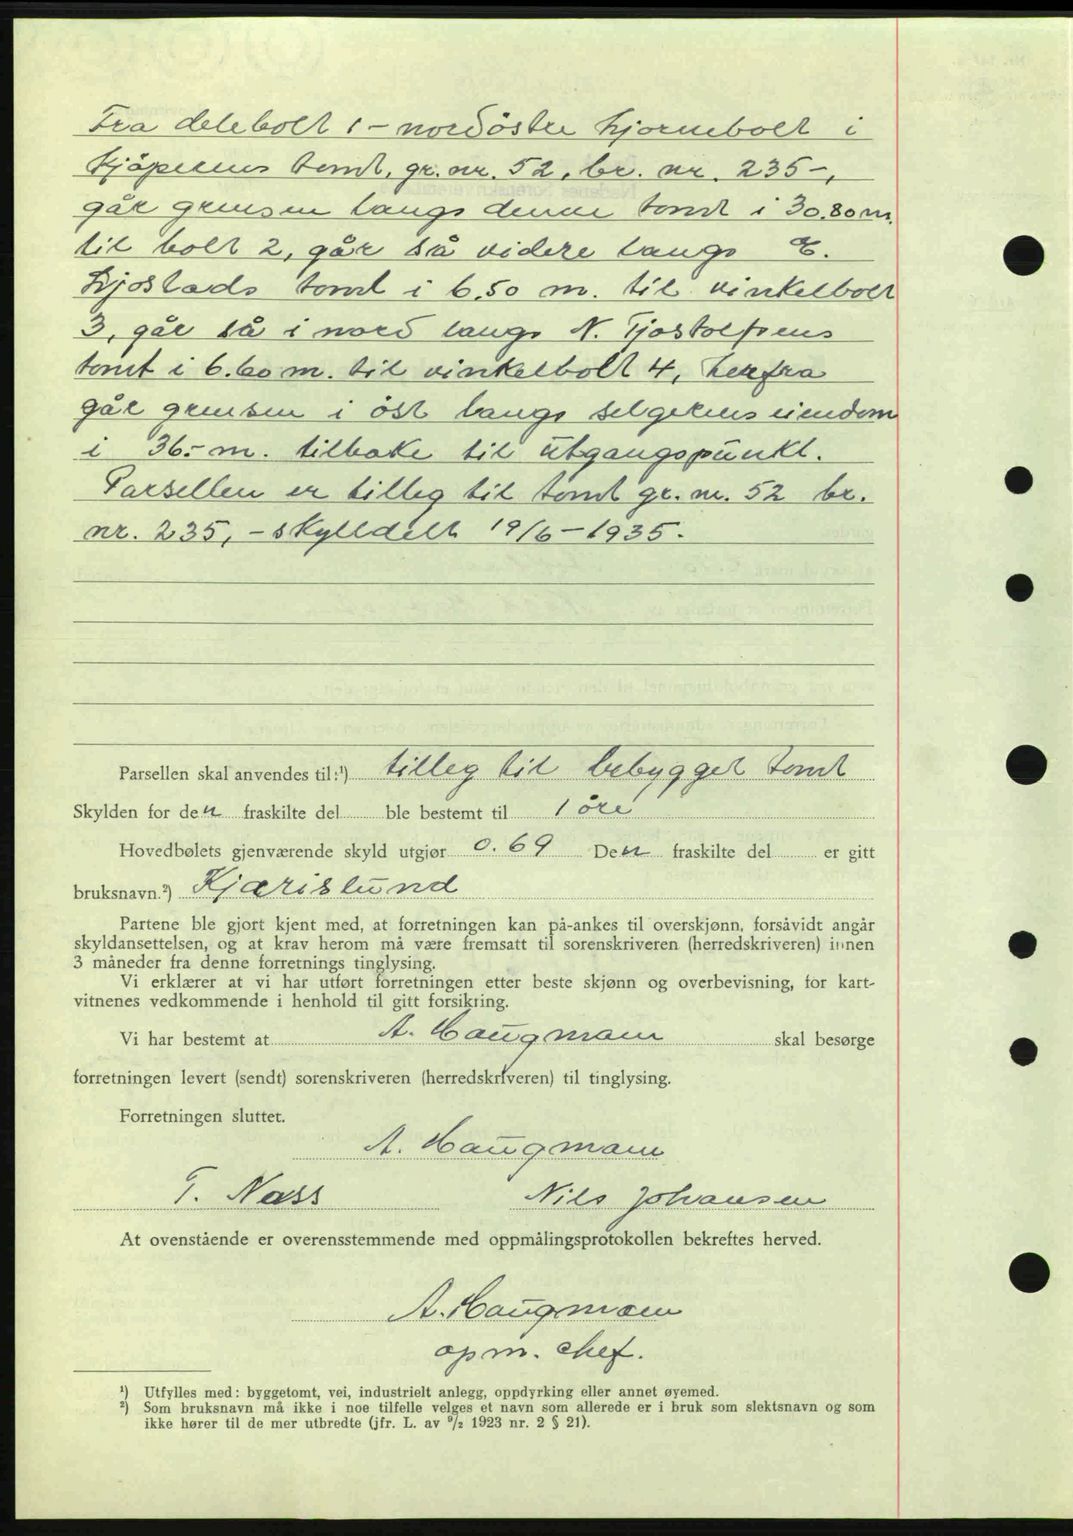 Fra delebolt 1 - nordöstre hjørnebolt i
kjöperens tomt, gr. nr. 52, br. nr. 235-,
går grensen langs denne tomt i 30.80 m.
til bolt 2, går så videre langs E.
Ljostads tomt i 6.50 m. til vinkelbolt
3, går så i nord langs N. Tjostolfsens
tomt i 6.60 m. til vinkelbolt 4, herfra
går grensen i öst langs selgerens eiendom
i 36.- m. tilbake til utgangspunkt.
Parsellen er tilleg til tomt gr. nr. 52 br.
nr. 235, - skylldelt 19/6 - 1935.
Parsellen skal anvendes til:¹) tilleg til bebygget tomt
Skylden for den fraskilte del ble bestemt til 1 öre
Hovedbølets gjenværende skyld utgjør 0.69 Den fraskilte del er gitt
bruksnavn.²) Kjærislund
Partene ble gjort kjent med, at forretningen kan på-ankes til overskjønn, forsåvidt angår
skyldansettelsen, og at krav herom må være fremsatt til sorenskriveren (herredskriveren) innen
3 måneder fra denne forretnings tinglysing.
Vi erklærer at vi har utført forretningen etter beste skjønn og overbevisning, for kart-
vitnenes vedkommende i henhold til gitt forsikring.
Vi har bestemt at A. Haugmann skal besørge
forretningen levert (sendt) sorenskriveren (herredskriveren) til tinglysing.
Forretningen sluttet.
A. Haugmann
T. Næss Nils Johansen
At ovenstående er overensstemmende med oppmålingsprotokollen bekreftes herved.
A. Haugmann
opm. chef.
¹) Utfylles med: byggetomt, vei, industrielt anlegg, oppdyrking eller annet øyemed.
²) Som bruksnavn må ikke i noe tilfelle velges et navn som allerede er i bruk som slektsnavn og som
ikke hører til de mer utbredte (jfr. L. av ⁹/₂ 1923 nr. 2 § 21).